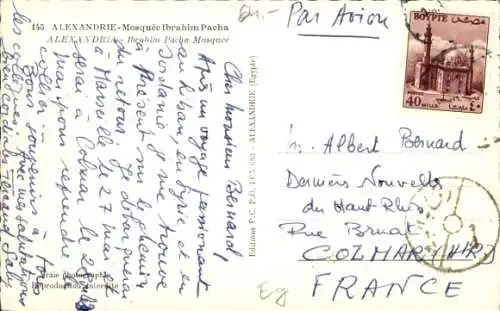 145 ALEXANDRIE - Mosquée Ibrahim Pacha
ALEXANDRIA - Ibrahim Pacha Mosquee
Cher Monsieur Bernard,
Après un voyage passionnant
au Liban, en Syrie et en
Jordanie je me trouve
à présent sur le chemin
du retour. Je débarquerai
à Marseille le 27 mai et
serai à Colmar le 28
mai pour reprendre
collier.
Bons souvenirs à tous
les collègues. Avec mes salutations
bien cordiales
Vraie Photographie
Reproduction interdite
Editions P.C. ALEXANDRIE (Egypte)
Par Avion
EGYPTE
POSTES
40 MILLS
٤٠
Mr. Albert Bernard
Dernières Nouvelles
du Haut Rhin
Rue Bruat
COLMAR (HR)
FRANCE
Eg